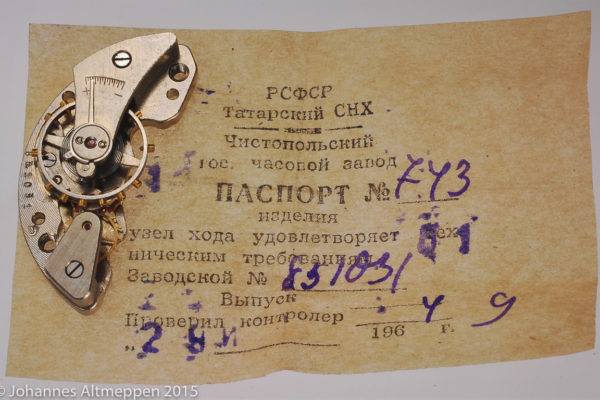 РСФСР
Татарский СНХ
Чистопольский
гос. часовой завод
ПАСПОРТ № 743
изделия
узел хода удовлетворяет тех-
ническим требованиям
Заводской № 851031
Выпуск
Проверил контролер
196 4 г.
© Johannes Altmeppen 2015